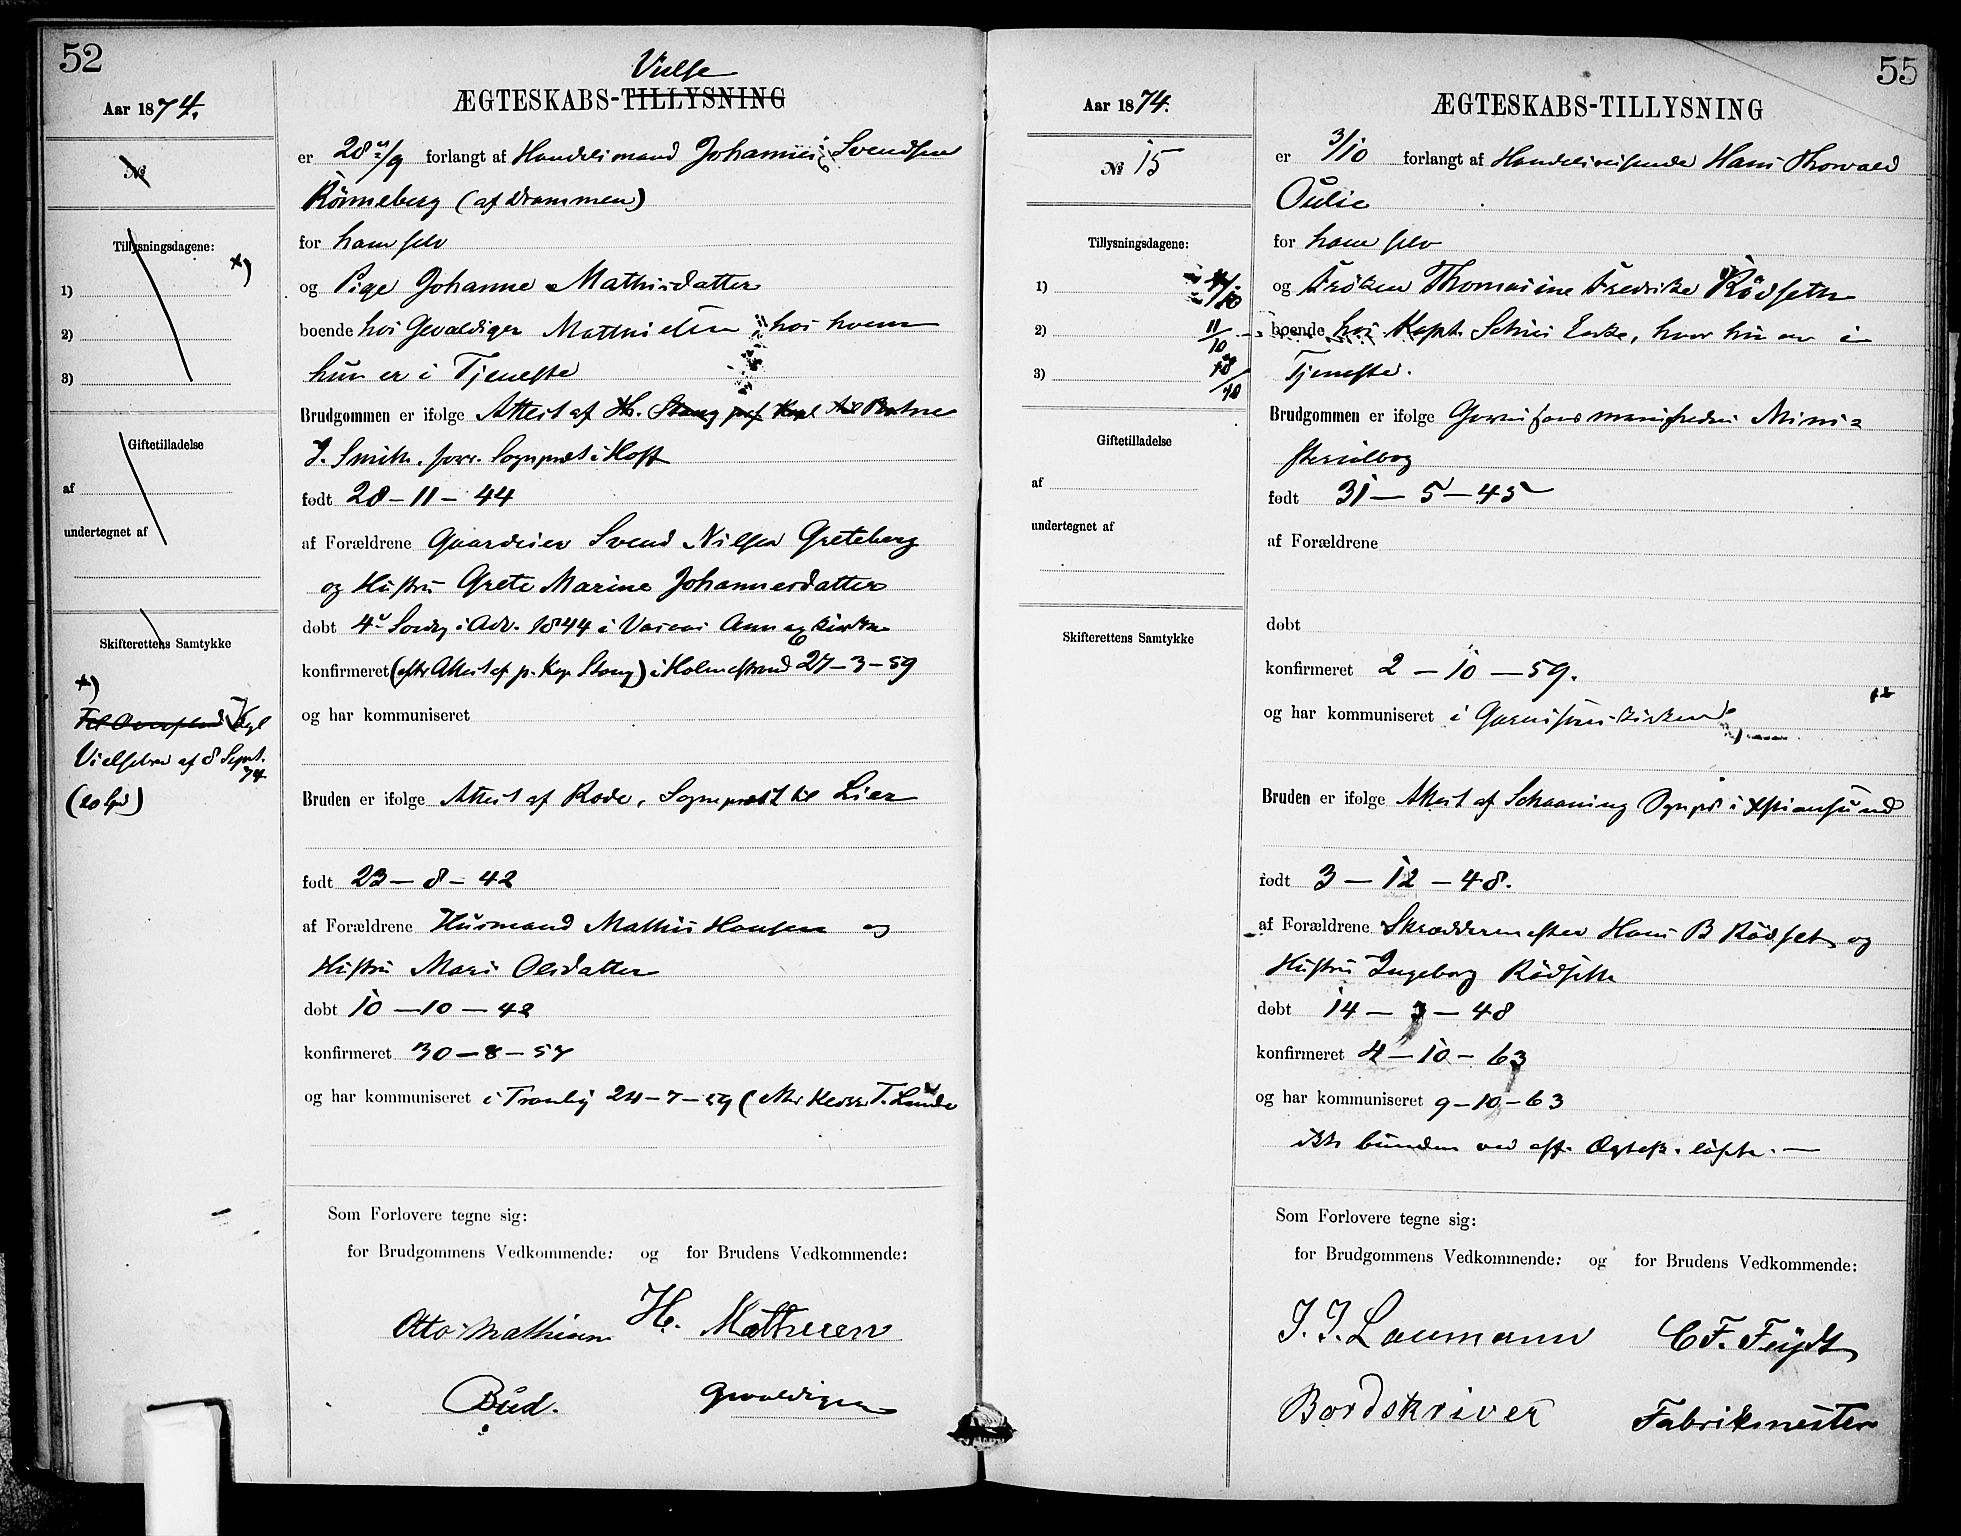 52
Aar 1874.
№
Tillysningsdagene:
x)
1)
2)
3)
Giftetilladelse
af
undertegnet af
Skifterettens Samtykke
x)
Kgl
Vielsebrev af 8 Sept.
74
Vielse
ÆGTESKABS-TILLYSNING
er 28/9 forlangt af Handelsmand Johannes Svendsen
Rönneberg (af Drammen)
for ham selv
og Pige Johanne Mathisdatter
boende hos Gevaldiger Matthiesen, hos hvem
hun er i Tjeneste
Brudgommen er ifølge Attest af
J. Smith, Sognepræst i Hoff
født 28-11-44
af Forældrene Gaardeier Svend Nilsen Greteberg
og Hustru Grete Marine Johannesdatter
døbt 4de Sondg i Adv. 1844 i Vasaas Annexkirke
konfirmeret (efter Attest af p. Kap Stang) i Holmestrand 27-3-59
og har kommuniceret
Bruden er ifølge Attest af Rode, Sognepræst til Lier
født 23-8-42
af Forældrene Husmand Mathis Hansen og
Hustru Mari Olsdatter
døbt 10-10-42
konfirmeret 30-8-57
og har kommuniseret i Tranby 24-7-59 (
Som Forlovere tegne sig:
for Brudgommens Vedkommende: og for Brudens Vedkommende:
Otto Mathisen H. Mathiesen
Bud. Gevaldiger
55
Aar 1874.
№ 15
Tillysningsdagene:
1) 4/10
2) 11/10
3) 18/10
Giftetilladelse
af
undertegnet af
Skifterettens Samtykke
ÆGTESKABS-TILLYSNING
er 3/10 forlangt af Handelsreisende Hans Thorvald
Oulie
for ham selv
og Fröken Thomasine Fredrikke Rödseth
boende hos Kapt. Enke, hvor hun er i
Tjeneste.
Brudgommen er ifølge Garnisonsmenighedens Mini-
sterialbog
født 31-5-45
af Forældrene
døbt
konfirmeret 2-10-59.
og har kommuniseret i Garnisonskirken
Bruden er ifølge Attest af Schaaning Sognepr i Xstiansund
født 3-12-48.
af Forældrene Skræddermester Hans B Rödset og
Hustru Ingeborg Rödseth
døbt 14-3-48
konfirmeret 4-10-63
og har kommuniseret 9-10-63
ikke bunden ved off. Ægtesk. löfte.
Som Forlovere tegne sig:
for Brudgommens Vedkommende: og for Brudens Vedkommende:
J. J. Laumann C F. Feydt
Bordskriver Fabrikmester